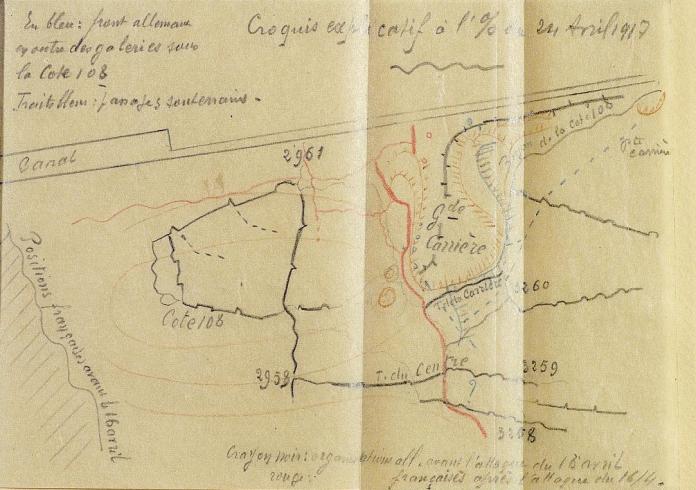 En bleu : front allemand
et entrée des galeries sous
la Cote 108
Traits bleus : passages souterrains -
Croquis explicatif à l'% du 24 Avril 1917
Canal
2961
de la Cote 108
Pte
Carrière
Gde
Carrière
T. de la Carrière
3260
Cote 108
Positions françaises avant le 16 avril
2958
T. du Centre
3259
?
3258
Crayon noir : organisations all. avant l'attaque du 16 avril
rouge : françaises après l'attaque du 16/4.